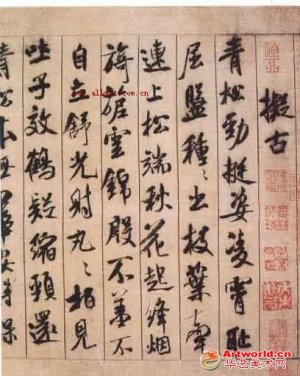 擬古
青松勁挺姿凌霄恥
屈盤種〻出枝葉牽
連上松端秋花起絳烟
旖旎雲錦殷不羞不
自立舒光射丸〻柏見
吐子效鶴疑縮頸還
Artworld.cn
华艺美术网